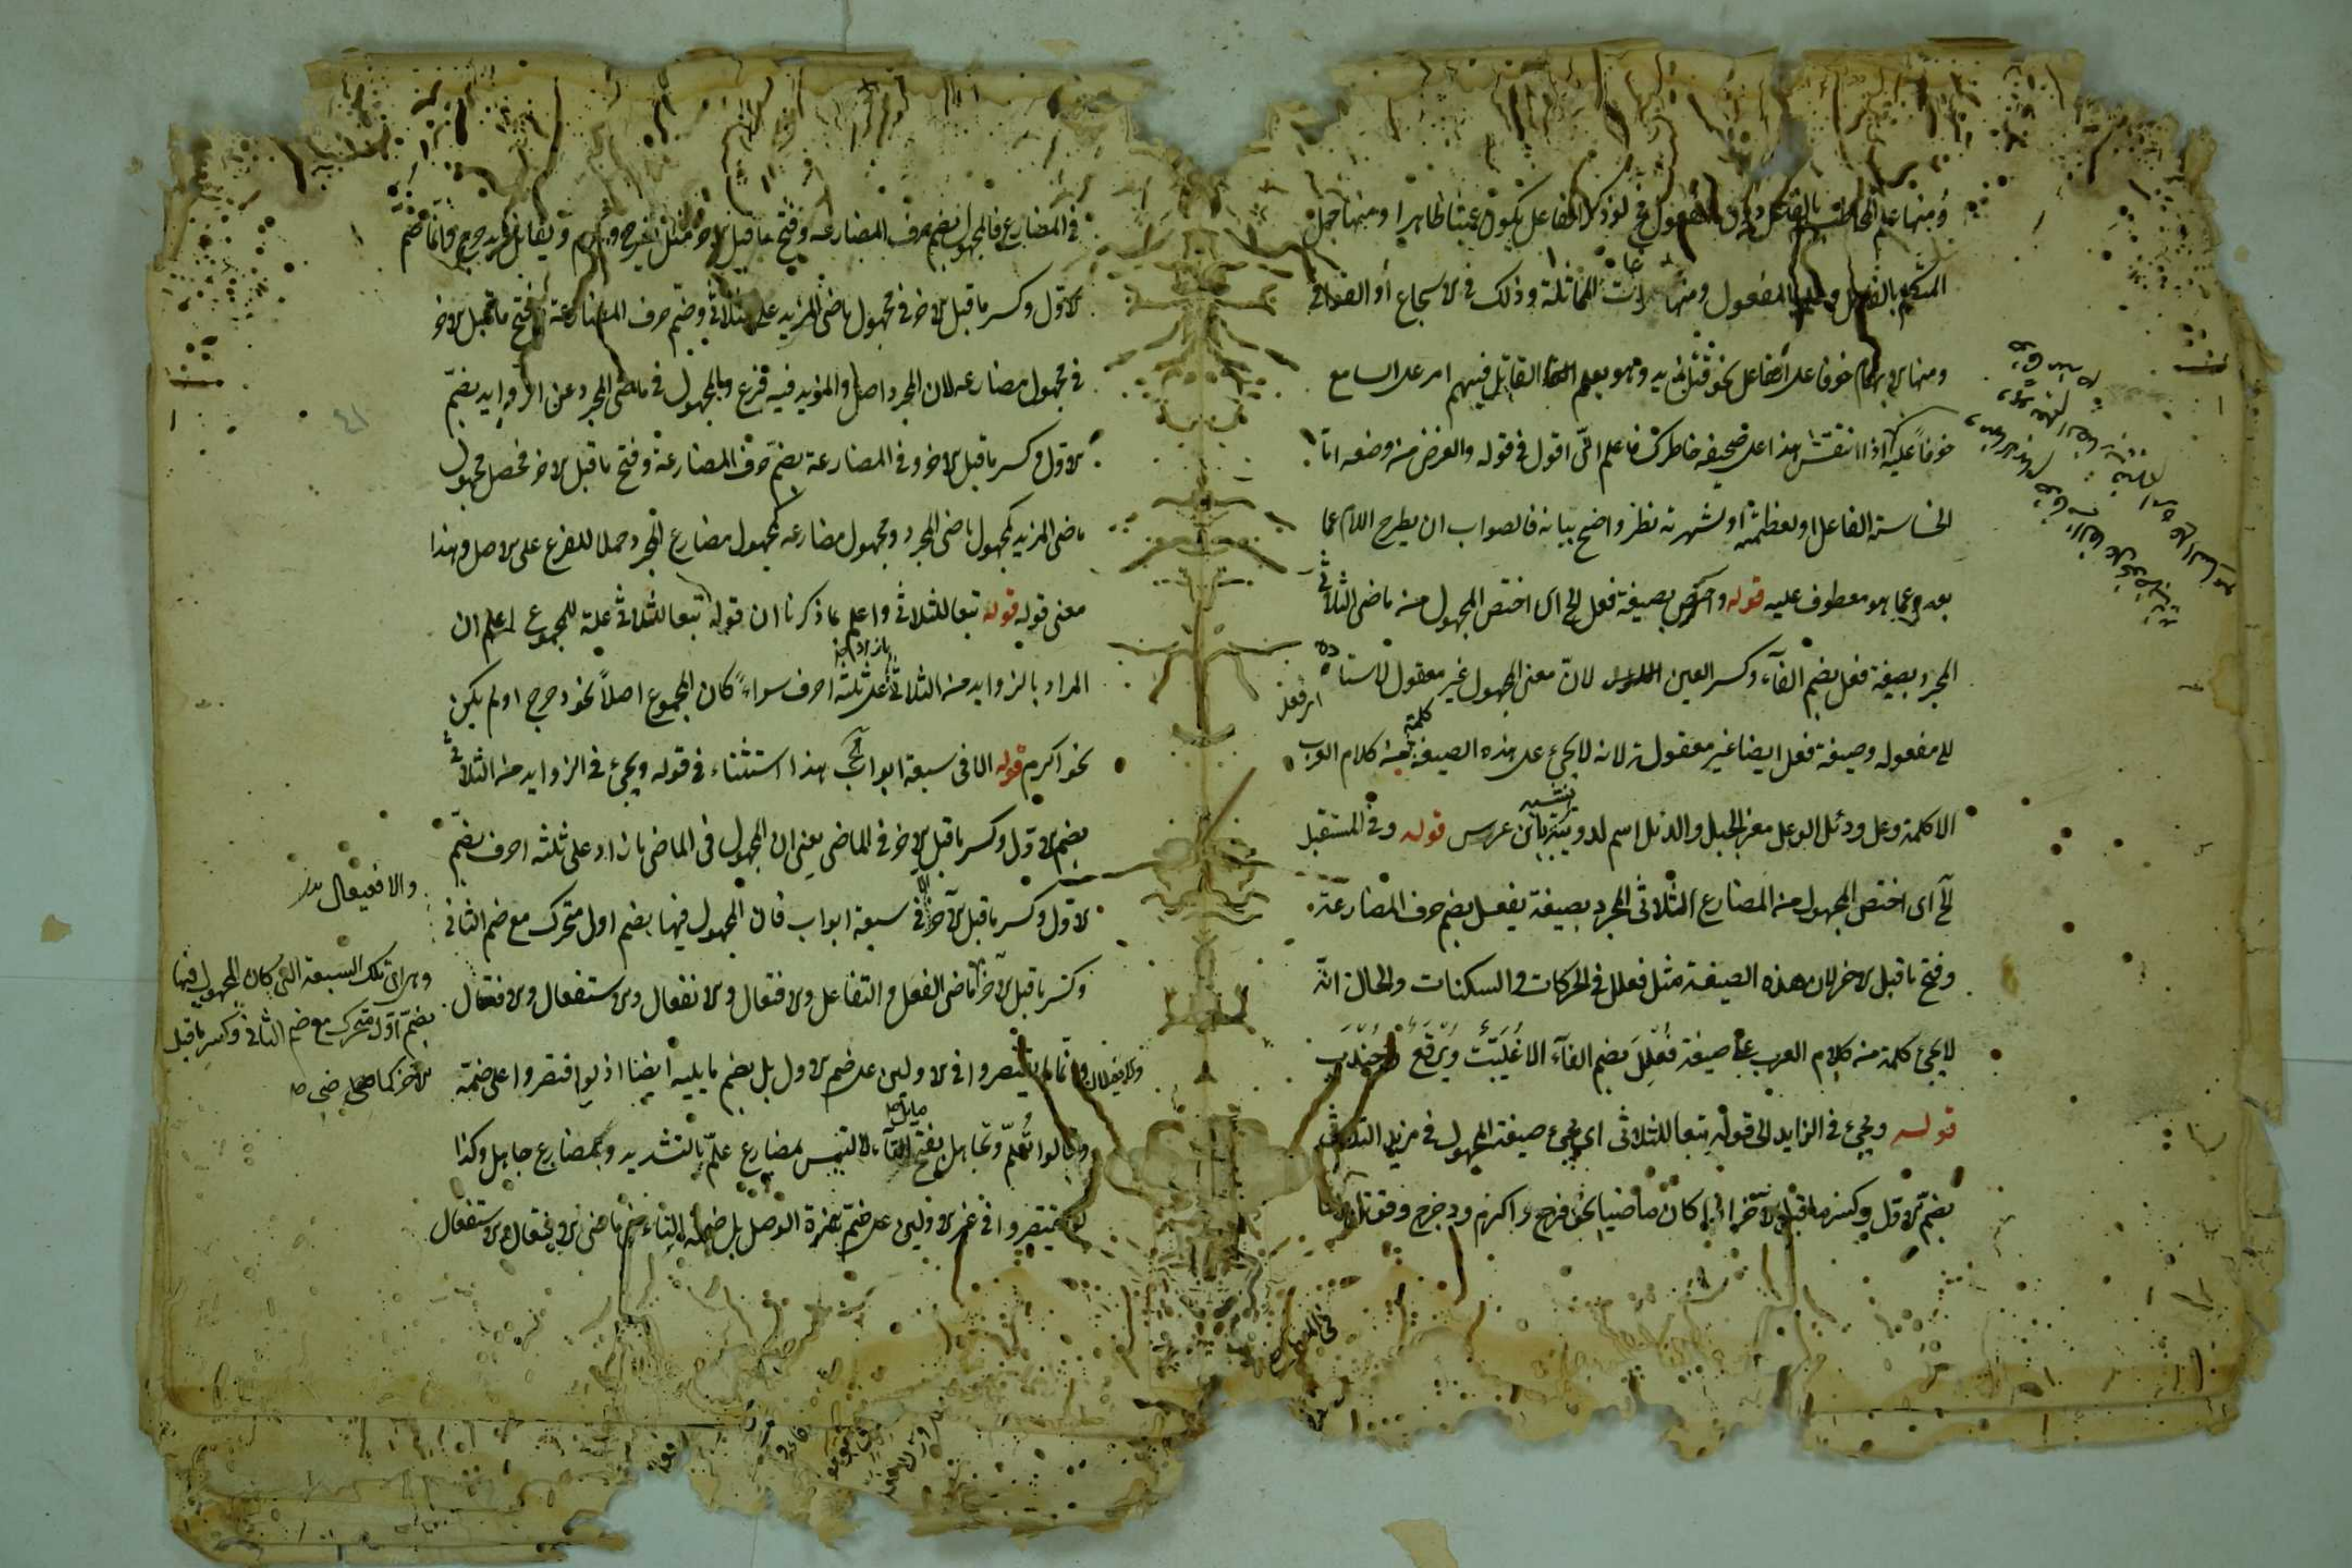 ومنها علم المخاطب بالفاعل دون المفعول لو ذكر الفاعل يكون عبثا ظاهرا ومنها جهل
المتكلم بالفاعل المفعول ومنها المماثلة وذلك في الاسجاع او القوافي
ومنها الابهام خوفا على الفاعل نحو قتل زيد وهو يعلم القاتل فيبهم امر على السامع
خوفا عليه اذا انتقش هذا على صحيفة خاطرك فاعلم انى اقول في قوله والغرض من وضعه اما
لخساسة الفاعل او لعظمته او لشهرته نظر واضح بيانه فالصواب ان يطرح اللام عما
بعده وعما هو معطوف عليه قوله واختص بصيغة فعل الخ اى اختص المجهول من ماضى الثلاثى
المجرد بصيغة فعل بضم الفاء وكسر العين لان معنى المجهول غير معقول لاسناده
الى مفعوله وصيغة فعل ايضا غير معقولة لانه لا يجئ على هذه الصيغة كلمة من كلام العرب
الا كلمة وعل ودئل الوعل معز الجبل والدئل اسم لدويبة تشبه بابن عرس قوله وفى المستقبل
الخ اى اختص المجهول من المضارع الثلاثى المجرد بصيغة يفعل بضم حرف المضارعة
وفتح ما قبل الاخر لان هذه الصيغة مثل فعلل فى الحركات والسكنات والحال انه
لا يجئ كلمة من كلام العرب على صيغة فعلل بضم الفاء الا وبرقع وجندب
قوله ويجئ فى الزايد الى قوله تبعا للثلاثى اى يجئ صيغة المجهول فى مزيد الثلاثى
بضم الاول وكسر ما قبل الآخر اذا كان ماضيا نحو فرح واكرم ودحرج وقوتل
فى المضارع
فى المضارع فالمجهول بضم حرف المضارعة وفتح ما قبل الاخر مثل يفرح ويكرم ويقاتل ويدحرج وانما ضم
الاول وكسر ما قبل الاخر فى مجهول ماضى المزيد على الثلاثى وضم حرف المضارعة وفتح ما قبل الاخر
فى مجهول مضارعه لان المجرد اصل والمزيد فيه فرع والمجهول فى ماضى المجرد عن الزوايد بضم
الاول وكسر ما قبل الاخر وفى المضارعة بضم حرف المضارعة وفتح ما قبل الاخر فحصل مجهول
ماضى المزيد كمجهول ماضى المجرد ومجهول مضارعه كمجهول مضارع المجرد حملا للفرع على الاصل وهذا
معنى قوله قوله تبعا للثلاثى واعلم بما ذكرنا ان قوله تبعا للثلاثى علة للمجموع اعلم ان
المراد بالزوايد من الثلاثى على ثلثة احرف سواء كان المجموع اصلا نحو دحرج او لم يكن
نحو اكرم قوله الا فى سبعة ابواب الخ هذا استثناء فى قوله ويجئ فى الزوايد من الثلاثى
بضم الاول وكسر ما قبل الاخر فى الماضى يعنى ان المجهول فى الماضى مازاد على ثلثة احرف بضم
الاول وكسر ما قبل الآخر الا فى سبعة ابواب فان المجهول فيها بضم اول متحرك مع ضم الثانى
وكسر ما قبل الآخر ماضى التفعل والتفاعل والافتعال والانفعال والاستفعال والافعلال
والافعيلال وانما لم يقتصروا فى الاولين على ضم الاول بل بضم ما يليه ايضا اذ لو اقتصروا على ضمة
وقالوا تعلم وتجاهل بفتح ما يلى التاء لالتبس بمضارع علم بالتشديد وبمضارع جاهل وكذا
لم يقتصروا فى غير الاولين على ضم همزة الوصل بل ضموا التاء من ماضى الافتعال والاستفعال
والافعيعال
وهى اى تلك السبعة التى كان المجهول فيها
بضم اول متحرك مع ضم الثانى وكسر ما قبل
الآخر كما